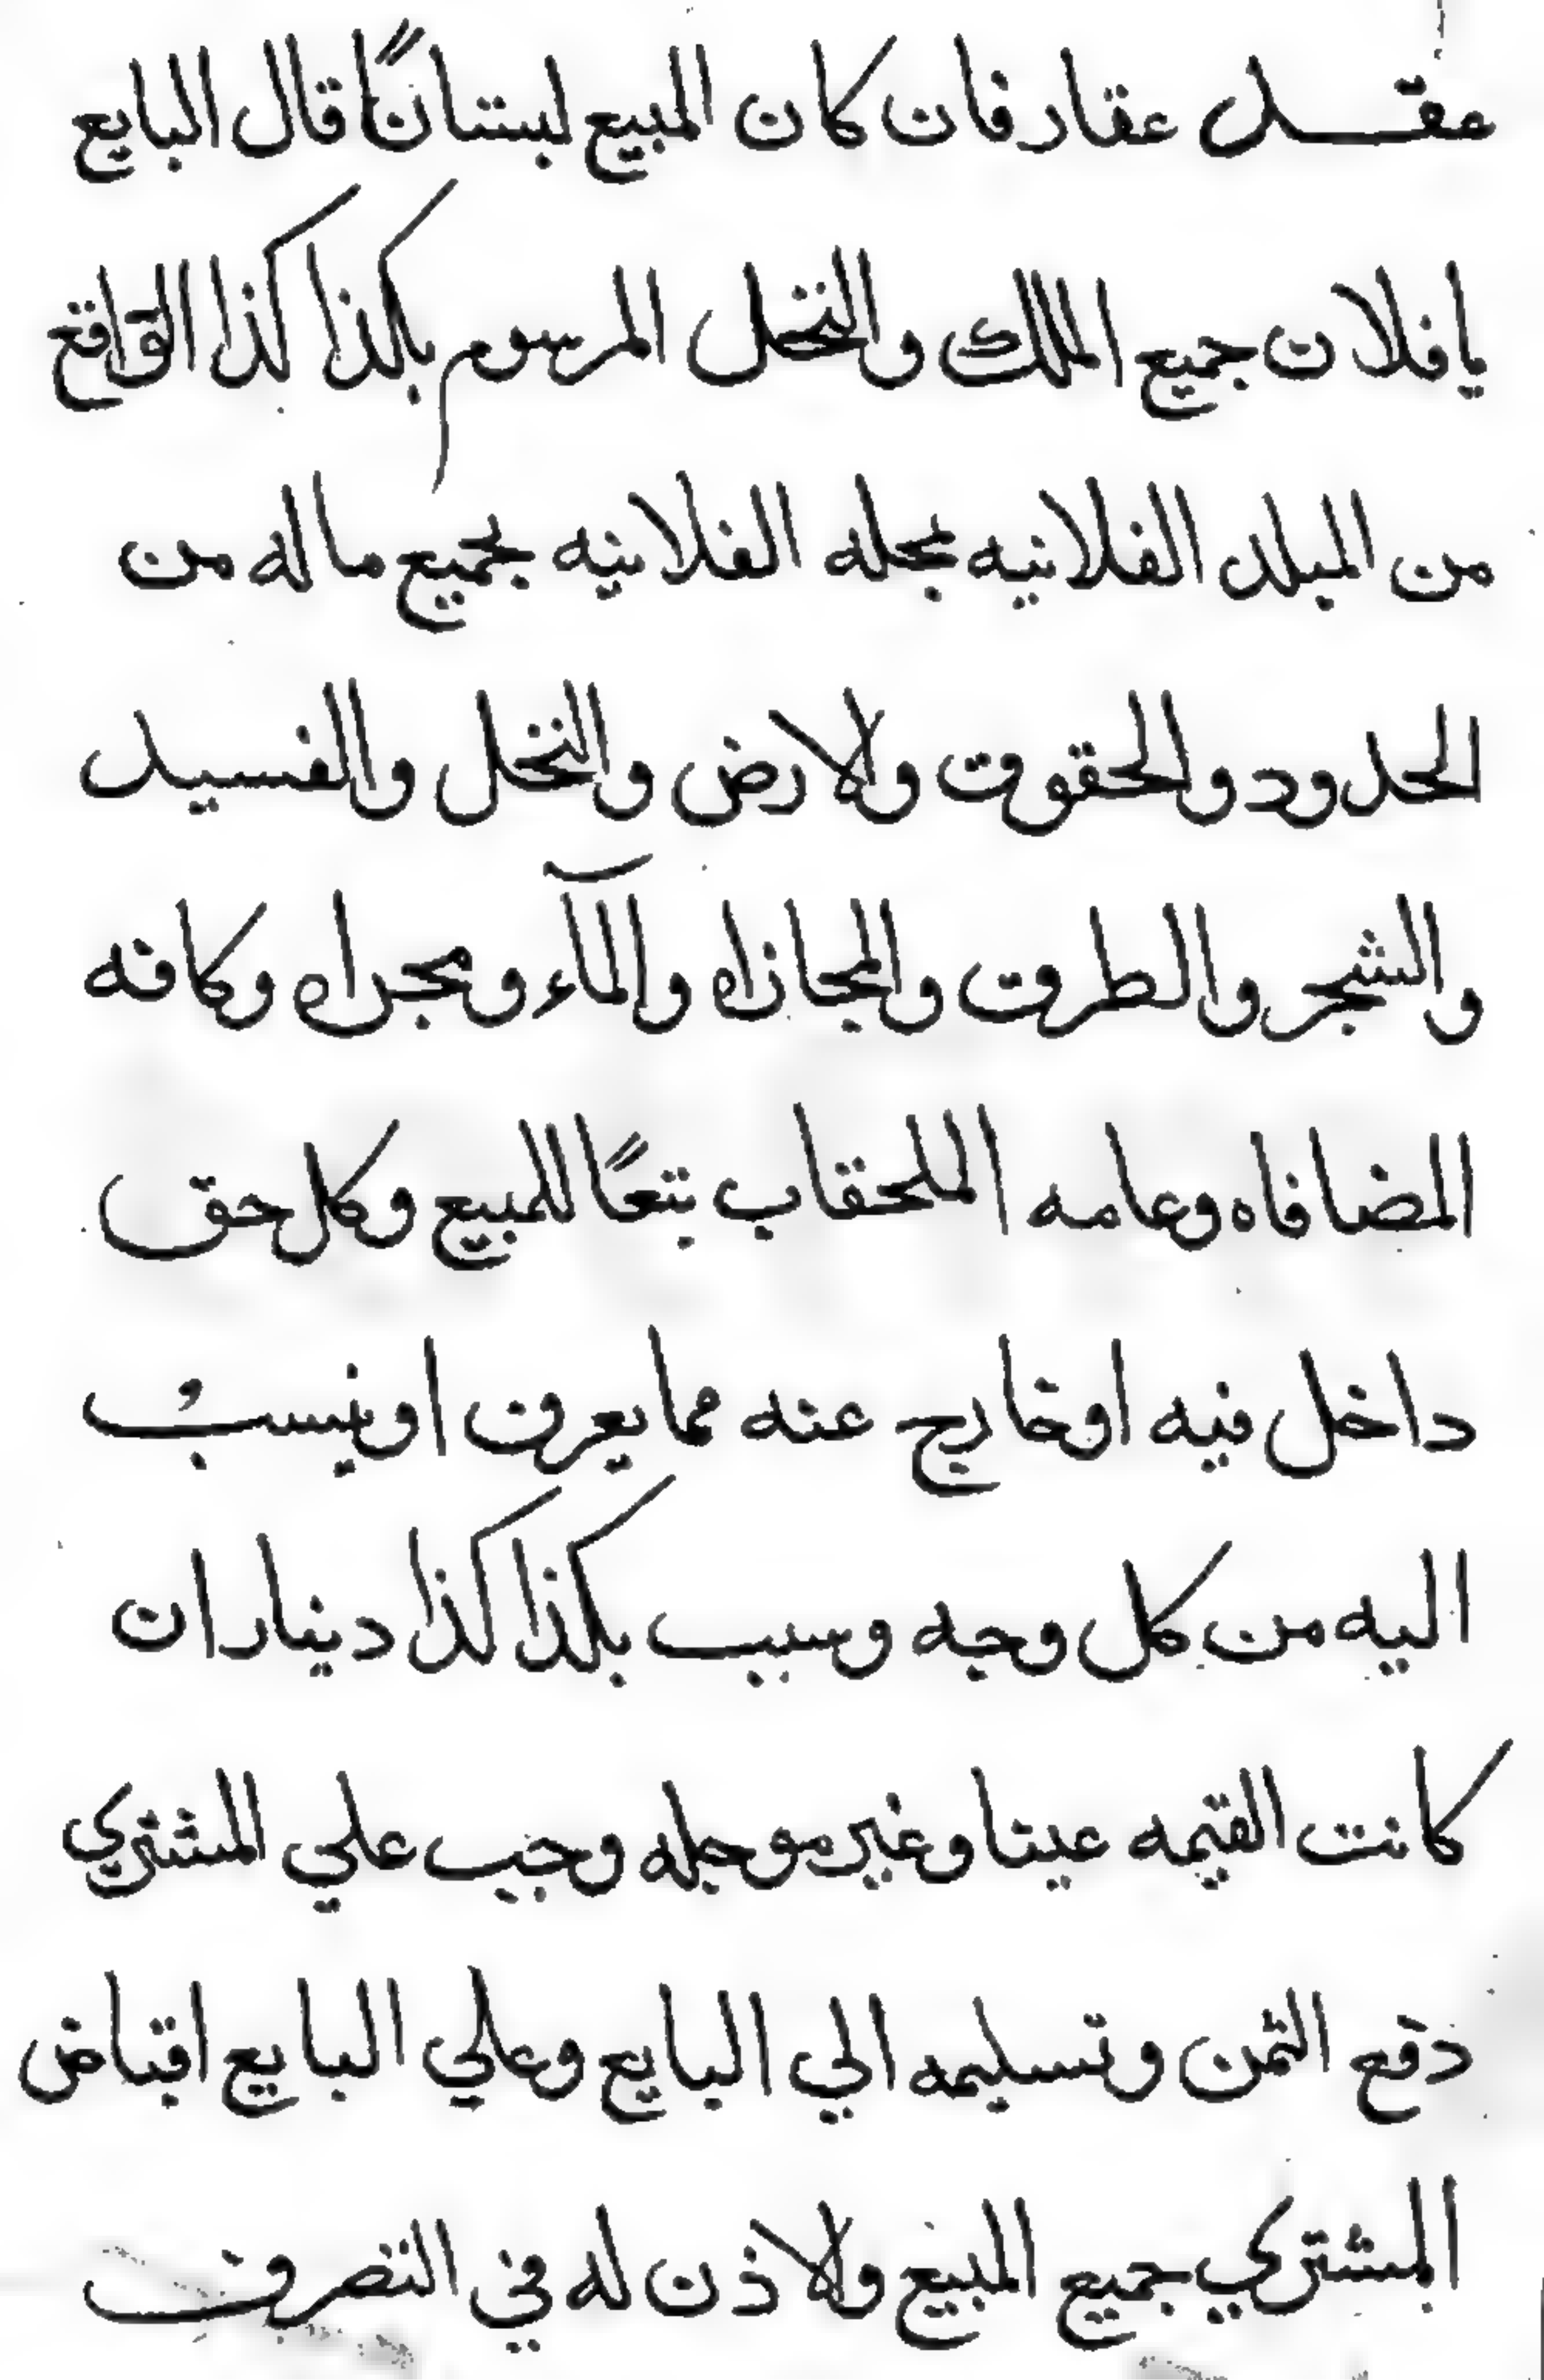 عقد عقار فان كان المبيع لبستانًا قال البايع
يا فلان جميع الملك والنخل المرسوم بكذا كذا الواقع
من البلد الفلانيه بمحله الفلانيه بجميع ماله من
الحدود والحقوق ولارض والنخل والفسيل
والشجر والطرق والمجازاه والمآء ومجراه وكافه
المضافاه وعامه الملحقاب بتعًا للمبيع وكل حق
داخل فيه او خارج عنه مما يعرف او ينسبُ
اليه من كل وجه وسبب بكذا كذا دينار ان
كانت القيمه عينا وغير موجله وجب علي المشتري
دفع الثمن وتسليمه الي البايع وعلي البايع اقباض
المشتري جميع المبيع ولاذن له في التصرف